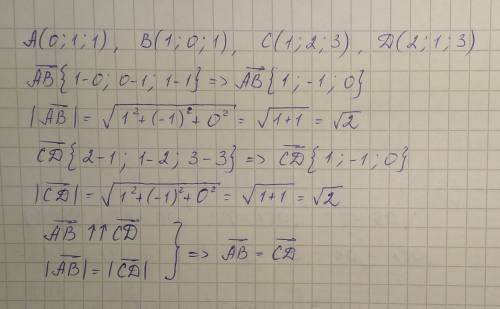 A(0;1;1), B(1;0;1), C(1;2;3), D(2;1;3)
A̅B̅{1-0; 0-1; 1-1} => A̅B̅{1;-1;0}
|A̅B̅| = √(1²+(-1)²+0²) = √(1+1) = √2
C̅D̅{2-1; 1-2; 3-3} => C̅D̅{1;-1;0}
|C̅D̅| = √(1²+(-1)²+0²) = √(1+1) = √2
A̅B̅ ↑↑ C̅D̅
|A̅B̅| = |C̅D̅| } => A̅B̅ = C̅D̅